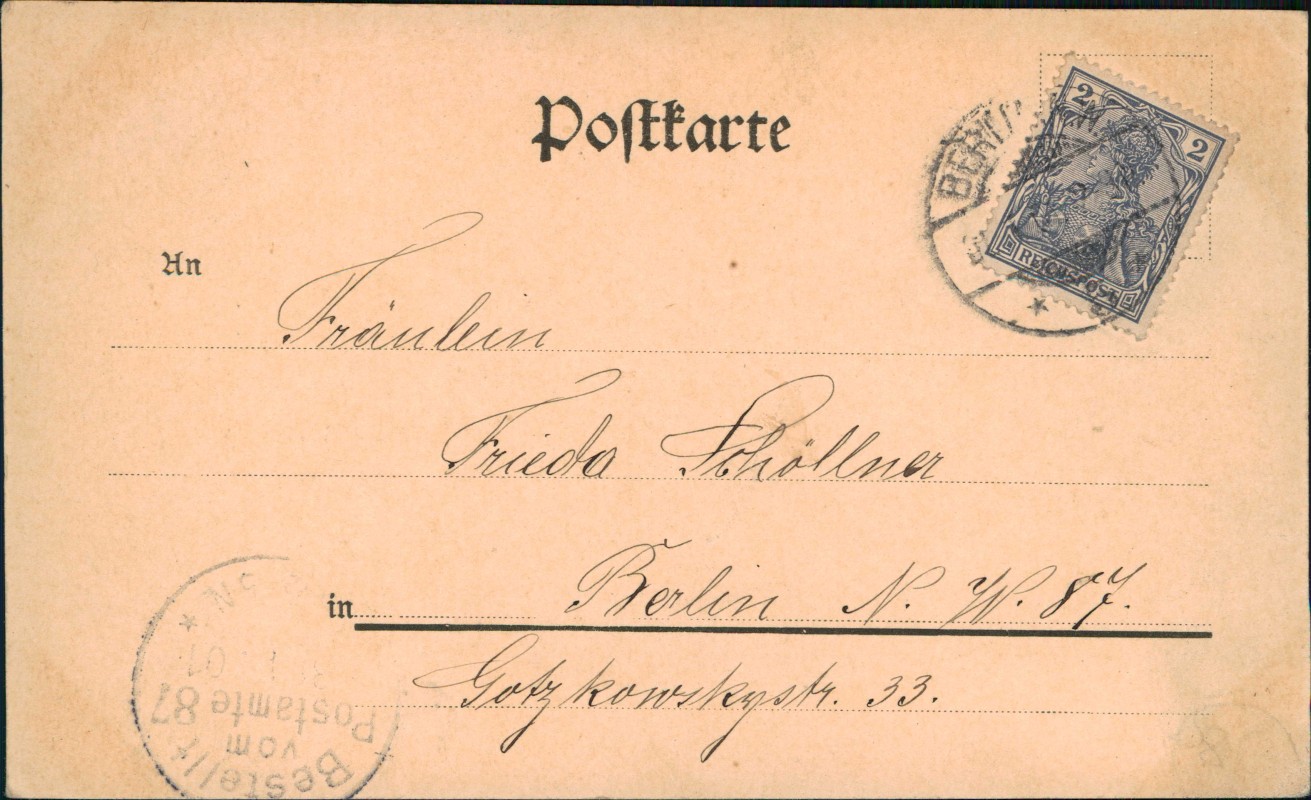 Postkarte
2 2
REICHSPOST
BERLIN
An
Fräulein
Frieda Schöllner
in Berlin N. W. 87.
Gotzkowskystr. 33.
Bestellt
vom
Postamte 87
01
5 N